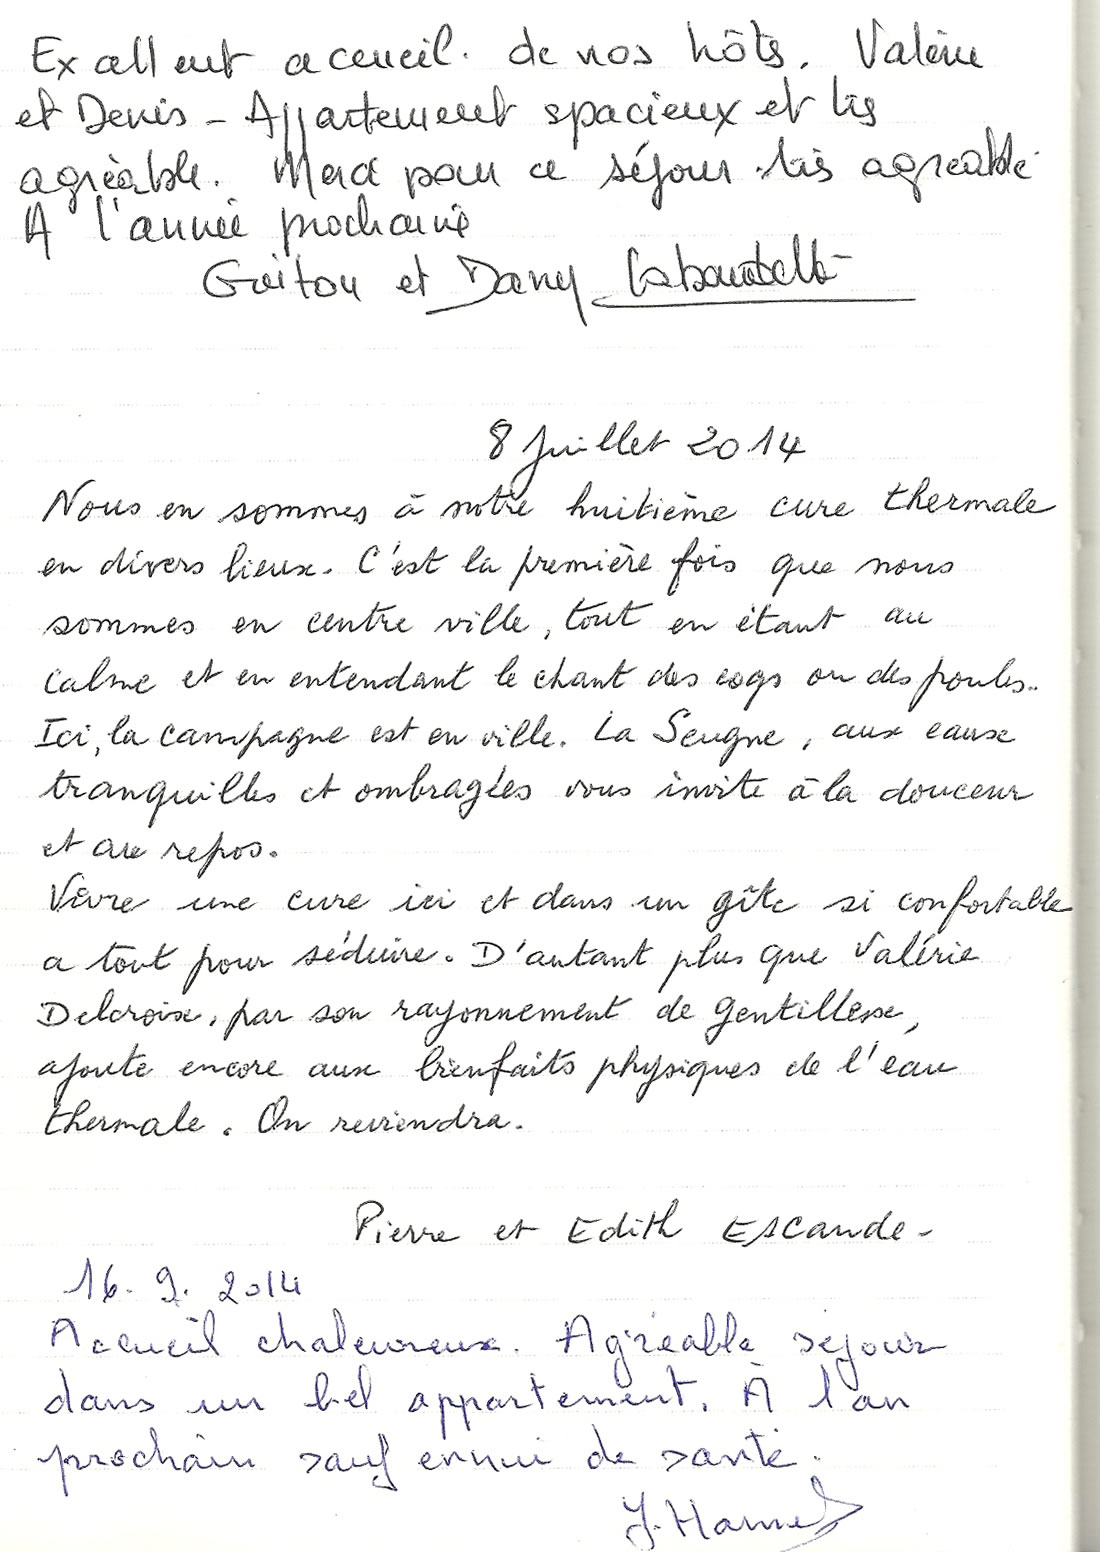 Excellent acceuil. de nos hôtes. Valérie
et Denis - Appartement spacieux et très
agréable. Merci pour ce séjour très agréable
A l'année prochaine
Guitou et Dany
8 Juillet 2014
Nous en sommes à notre huitième cure thermale
en divers lieux. C'est la première fois que nous
sommes en centre ville, tout en étant au
calme et en entendant le chant des coqs ou des poules..
Ici, la campagne est en ville. La Seugne, aux eaux
tranquilles et ombragées vous invite à la douceur
et au repos.
Vivre une cure ici et dans un gîte si confortable
a tout pour séduire. D'autant plus que Valérie
Delcroix, par son rayonnement de gentillesse,
ajoute encore aux bienfaits physiques de l'eau
thermale. On reviendra.
Pierre et Edith Escande -
16. 9. 2014
Accueil chaleureux. Agréable séjour
dans un bel appartement. À l'an
prochain sauf ennui de santé.
J. Hamel